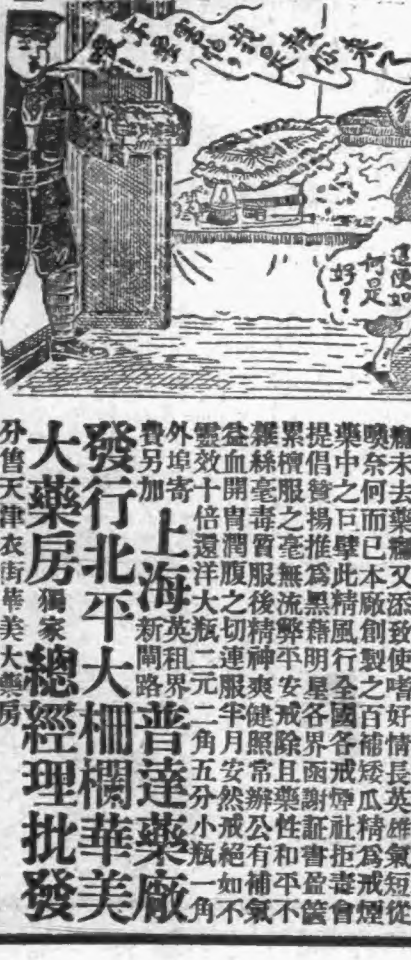 噯！不要害怕，我是救你來了
這便如何是好？
癮未去藥癮又添致使嗜好情長英雄氣短從
喚奈何而已本廠創製之百補矮瓜精爲戒煙
藥中之巨擘此精風行全國各戒煙社拒毒會
提倡贊揚推爲黑藉明星各界函謝証書盈篋
累檀服之毫無流弊平安戒除且藥性和平不
雜絲毫毒質服後精神爽健照常辦公有補氣
益血開胃潤腹之切連服半月安然戒絕如不
靈效十倍還洋大瓶二元二角五分小瓶一角
外埠寄
費另加
上海英租界新閘路普達藥廠
發行北平大柵欄華美
大藥房獨家總經理批發
分售天津衣街華美大藥房